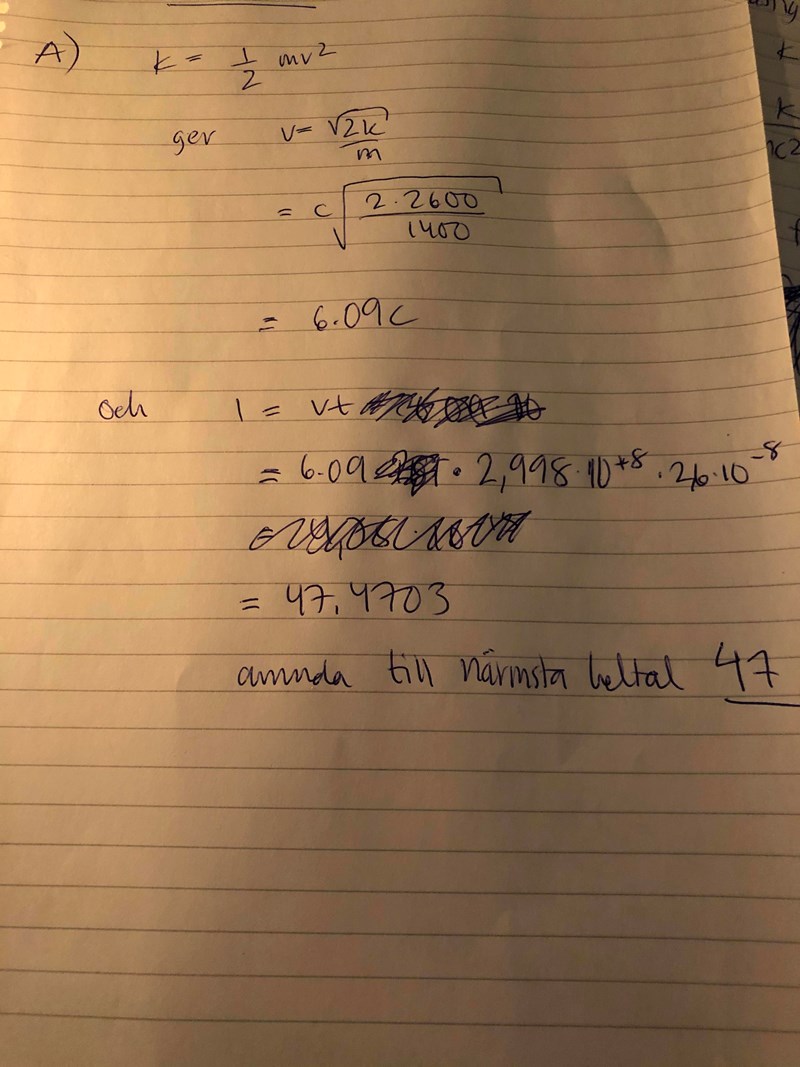 A) k = 1/2 mv²
ger v = √2k/m
= c √(2·2600/1400)
= 6.09c
och l = vt
= 6.09 · 2,998·10⁺⁸ · 26·10⁻⁸
= 47,4703
avrunda till närmsta heltal 47
k
k